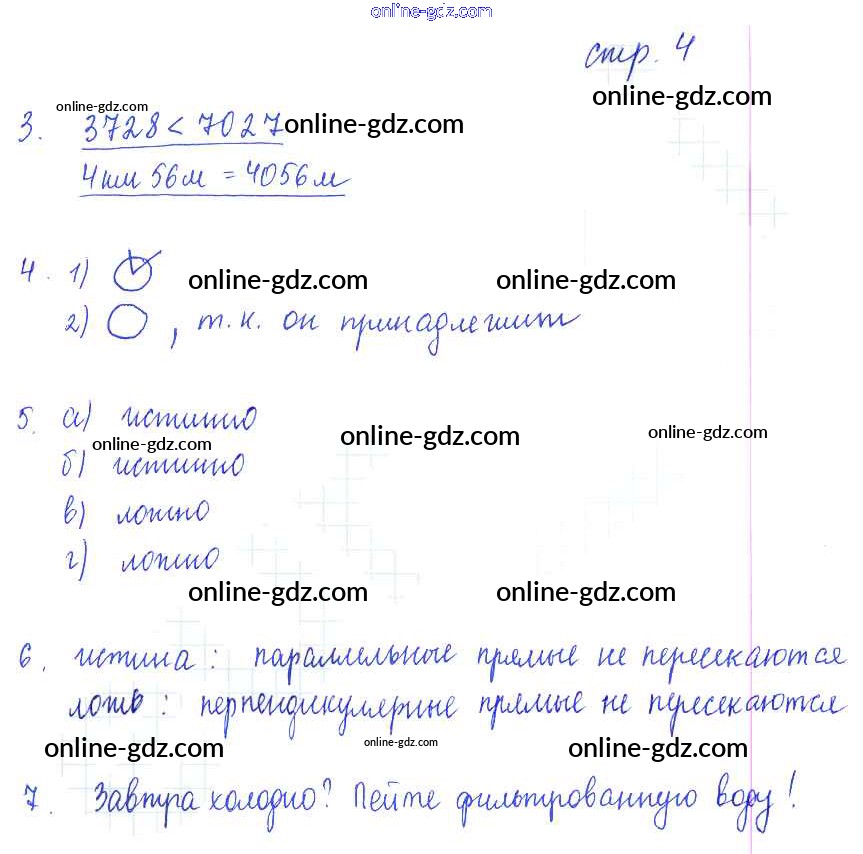 online-gdz.com
стр. 4
online-gdz.com
online-gdz.com
3. 3728 < 7027
online-gdz.com
4 км 56 м = 4056 м
4. 1)
online-gdz.com online-gdz.com
2) , т.к. он принадлежит
5. а) истинно
online-gdz.com online-gdz.com online-gdz.com
б) истинно
в) ложно
г) ложно
online-gdz.com online-gdz.com
6. истина: параллельные прямые не пересекаются
ложь: перпендикулярные прямые не пересекаются
online-gdz.com online-gdz.com online-gdz.com
7. Завтра холодно? Пейте фильтрованную воду!